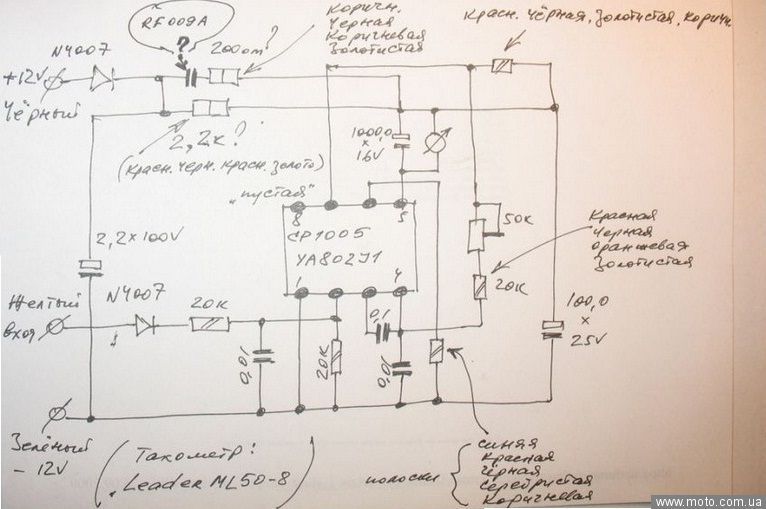 RF009A
?
N4007
200om?
Коричн.
Чёрная
Коричневая
Золотистая
Красн. Чёрная, Золотистая, Коричн.
+12V
Чёрный
2,2к?
(Красн. Черн. Красн. Золото)
1000,0
x
16V
"пустая"
8
5
СР1005
YA802J1
1
4
50к
Красная
Черная
оранжевая
Золотистая
2,2x100V
20к
100,0
x
25V
Желтый
вход
N4007
20к
0,1
0,01
20к
0,01
Зелёный
- 12V
(Тахометр:
Leader ML50-8)
полоски
синяя
красная
чёрная
серебристая
коричневая
www.moto.com.ua